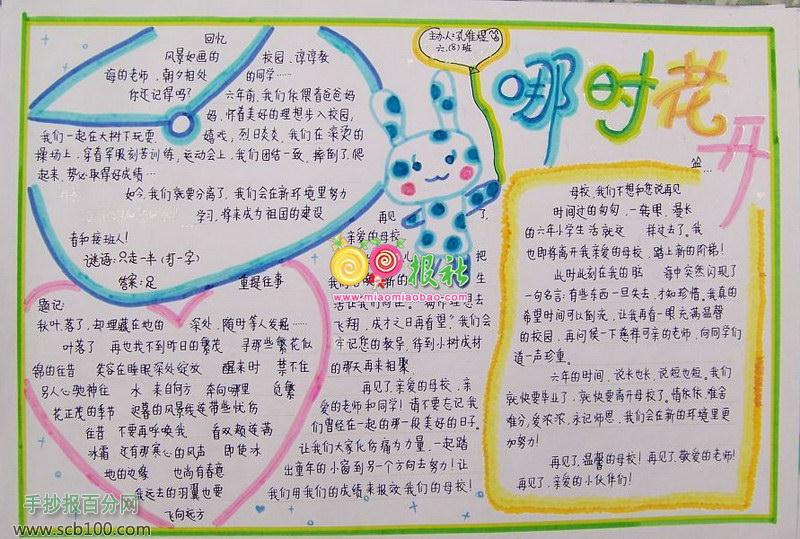 主办人:孔维琨
六.(8)班
哪时花开
回忆
风景如画的 校园、谆谆教
诲的老师、朝夕相处 的同学……
你还记得吗? 六年前,我们依偎着爸爸妈
妈,怀着美好的理想步入校园,
我们一起在大树下玩耍、 嬉戏,烈日炎炎,我们在滚烫的
操场上,穿着军服刻苦训练,运动会上,我们团结一致,摔倒了,爬
起来,势必取得好成绩…
如今,我们就要分离了,我们会在新环境里努力
学习,将来成为祖国的建设
者和接班人!
谜语:只走一半(打一字)
答案:足
重提往事
题记:
秋叶落了,却埋藏在他的 深处,随时等人发掘……
叶落了 再也找不到昨日的繁花 寻那些繁花似
锦的往昔 笑容在睡眠深处绽放 醒来时 禁不住
别人心驰神往 水 来自何方 奔向哪里
花正茂的季节 迟暮的风景线连带些忧伤
往昔 不要再呼唤我 看双颊涟漪
冰霜 还有那寒心的风声 即使冰
地的边缘 也尚有春意
我远去的羽翼也要
飞向远方
再见 了,
亲爱的母校
把
生
去
飞翔,成才之日再看望”我们会
牢记您的教导,待到小树成材
的那天再来相聚。
再见了,亲爱的母校,亲
爱的老师和同学!请不要忘记我
们曾经在一起的那一段美好的日子。
让我们大家化伤痛为力量,一起踏
出童年的小窗到另一个方向去努力!让
我们用我们的成绩来报效我们的母校!
母校,我们不想和您说再见
时间过的匆匆,一转眼,漫长
的六年小学生活就这 样过去了。我
也即将离开我亲爱的母校,踏上新的阶梯!
此时此刻在我的脑 海中突然闪现了
一句名言:有些东西一旦失去,才知珍惜。我真的
希望时间可以倒流,让我再看一眼充满温馨
的校园,再问候一下慈祥可亲的老师,向同学们
道一声珍重。
六年的时间,说长也长,说短也短。我们
就快要毕业了,就快要离开母校了。情依依,难舍
难分,爱浓浓,永记师恩,我们会在新的环境里更
加努力!
再见了,温馨的母校!再见了,敬爱的老师!
再见了,亲爱的小伙伴们!
报社
www.miaomiaobao.com
手抄报百分网
www.scb100.com